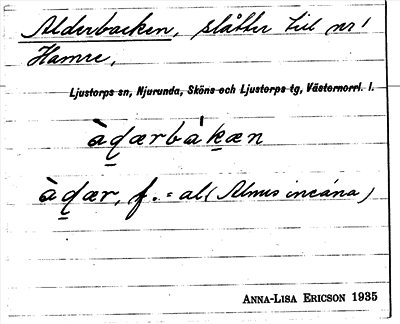 Alderbacken, slåtter till nr 1
Hamre,
Ljustorps sn, Njurunda, Sköns och Ljustorps tg, Västernorrl. l.
àɖærbákæn
àɖær, f. = al (Alnus incána)
ANNA-LISA ERICSON 1935